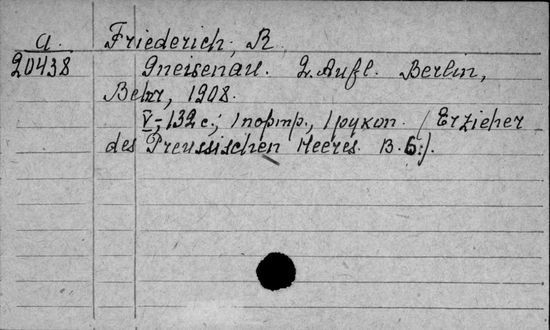 a. Friederich, R.
20438 Gneisenau. 2. Aufl. Berlin,
Behr, 1908.
V, 132 с.; 1 портр., 1 рукоп. (Erzieher
des Preussischen Heeres. B. 6.).